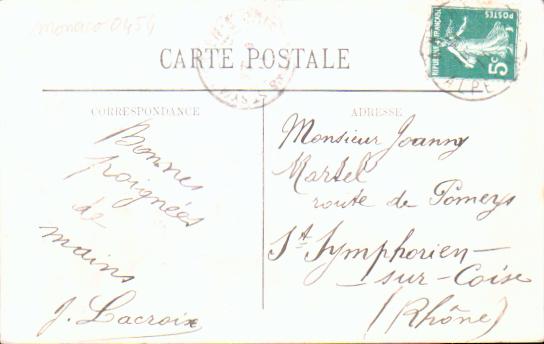 monaco 0454
CARTE POSTALE
POSTES
REPUBLIQUE FRANÇAISE
5c
ALPE
CORRESPONDANCE
Bonnes
poignées
de
mains
J. Lacroix
ADRESSE
Monsieur Joanny
Martel
route de Pomeys
St Symphorien-
sur-Coise
(Rhône)